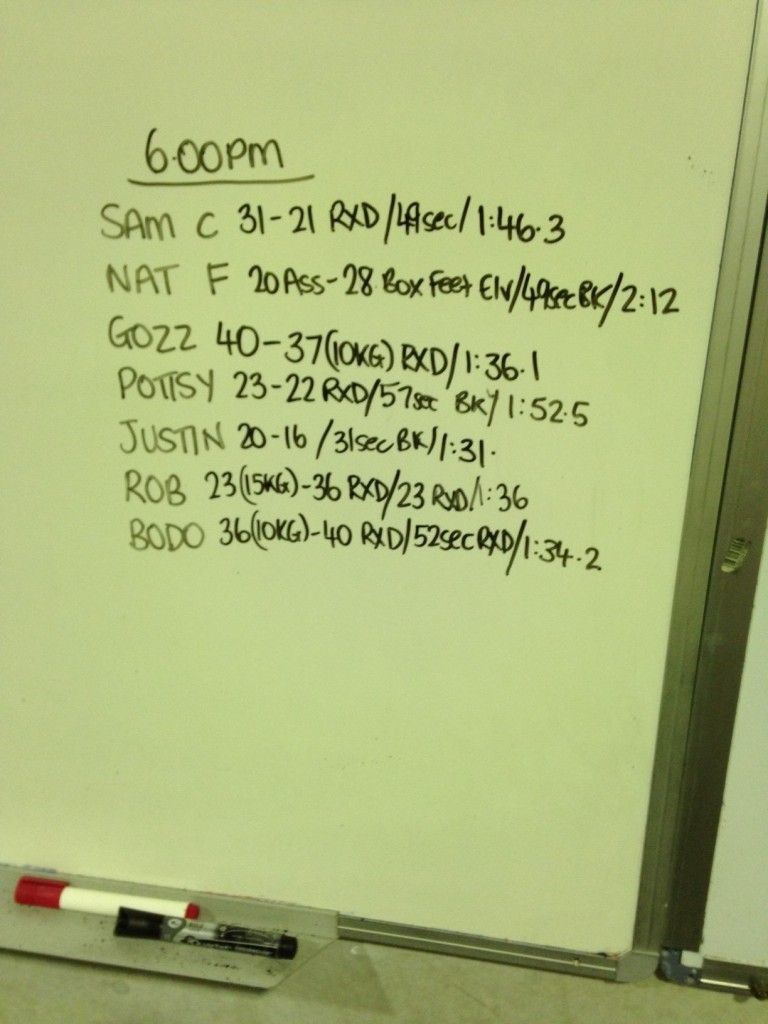 6.00PM
SAM C 31-21 RXD/49sec/1:46.3
NAT F 20Ass-28 Box Feet Elv/49secBK/2:12
GOZZ 40-37(10KG) RXD/1:36.1
POTTSY 23-22 RXD/57sec BK/1:52.5
JUSTIN 20-16 /31secBK/1:31.
ROB 23(15KG)-36 RXD/23 RXD/1:36
BODO 36(10KG)-40 RXD/52secRXD/1:34.2